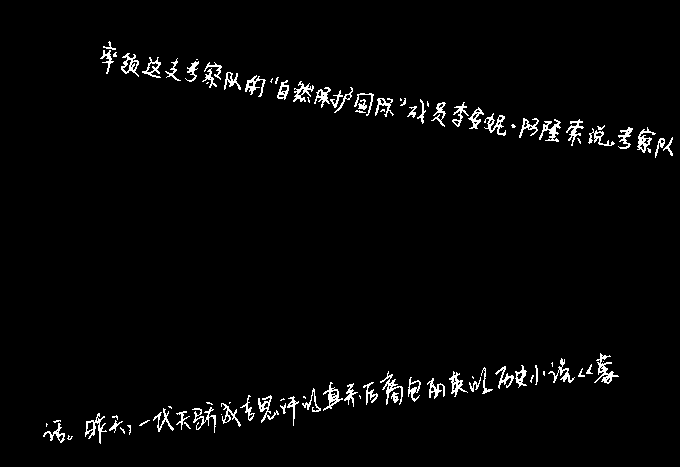 率领这支考察队的“自然保护国际”成员李安妮·阿隆索说，考察队
话。昨天，一代天骄成吉思汗的直系后裔包丽英的历史小说《蒙